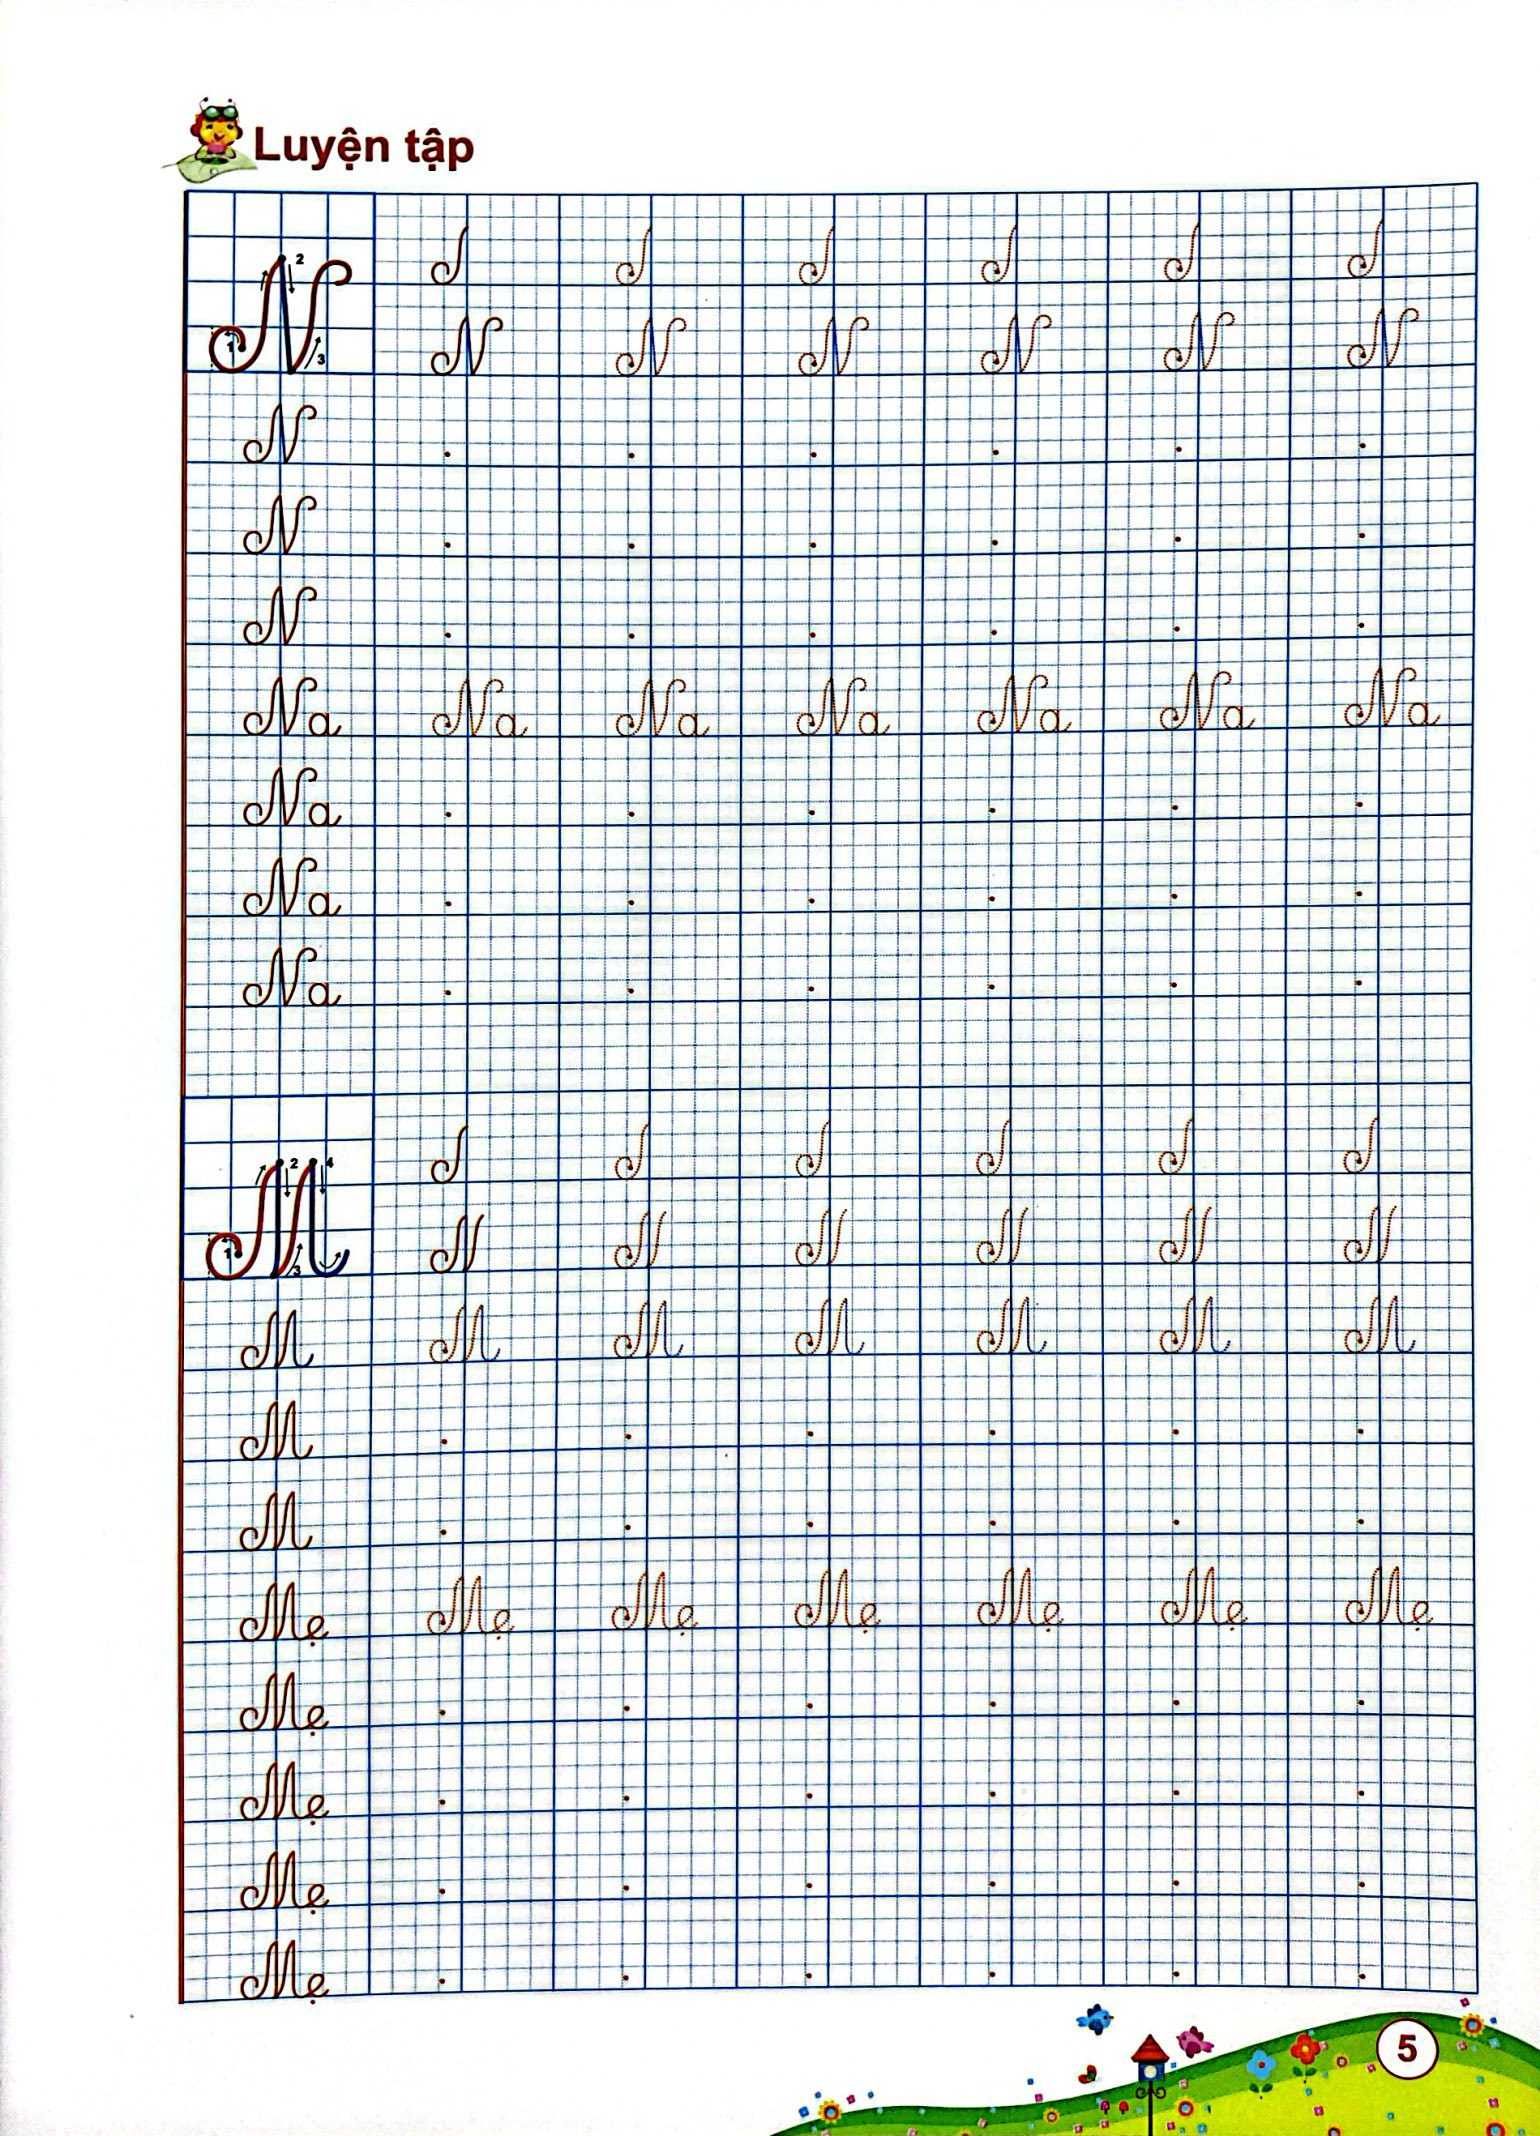 Luyện tập
1 2 3
N N N N N N
N
N
N
Na Na Na Na Na Na Na
Na
Na
Na
1 2 3 4
M M M M M M M
M
M
Mẹ Mẹ Mẹ Mẹ Mẹ Mẹ Mẹ
Mẹ
Mẹ
Mẹ
Mẹ
5